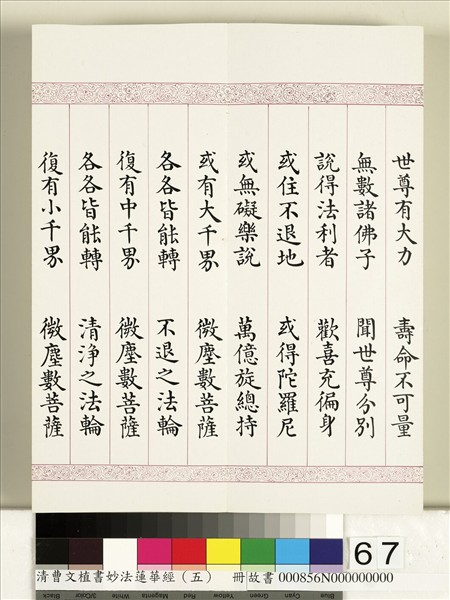 世尊有大力　壽命不可量
無數諸佛子　聞世尊分別
說得法利者　歡喜充徧身
或住不退地　或得陀羅尼
或無礙樂說　萬億旋總持
或有大千界　微塵數菩薩
各各皆能轉　不退之法輪
復有中千界　微塵數菩薩
各各皆能轉　清淨之法輪
復有小千界　微塵數菩薩
67
清曹文植書妙法蓮華經（五）　冊故書 000856N000000000
Black 3/Color White Magenta Red Yellow Green Cyan Blue